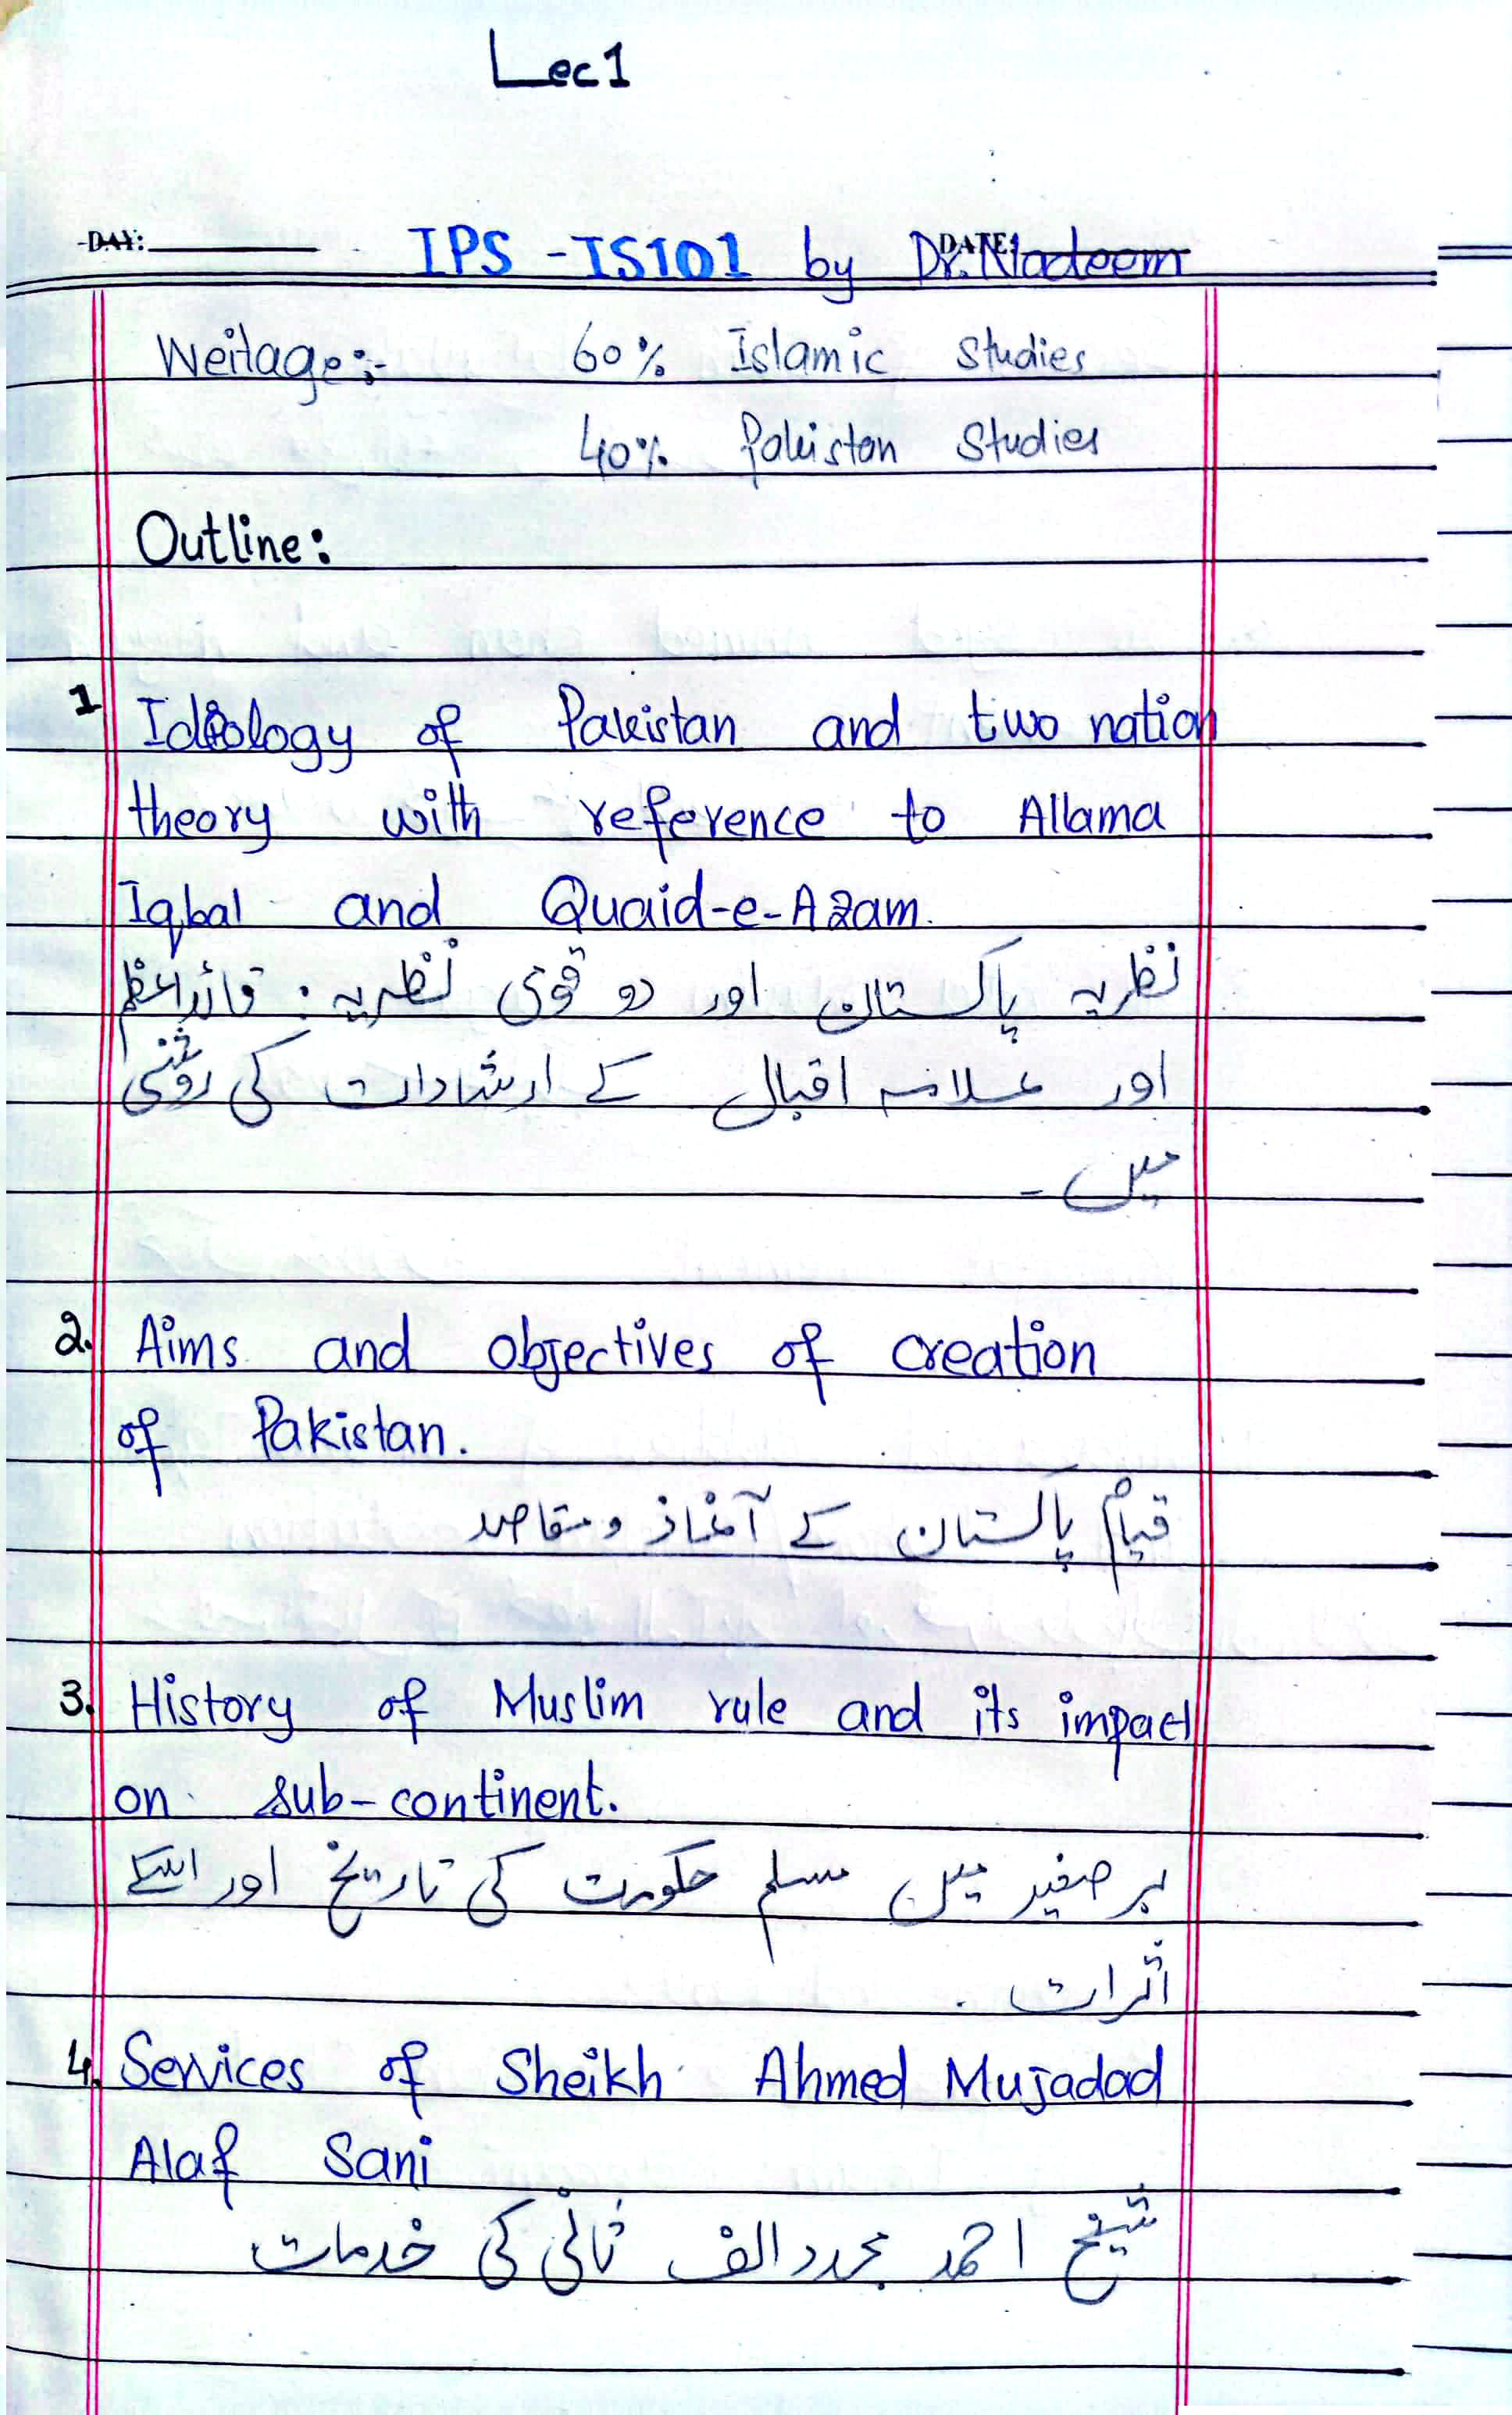 Lec 1
DAY: IPS - IS101 by Dr. Nadeem DATE:
Weitage:- 60% Islamic Studies
40% Pakistan Studies
Outline:
1 Ideology of Pakistan and two nation
theory with reference to Allama
Iqbal and Quaid-e-Azam.
نظریہ پاکستان اور دو قومی نظریہ : قائداعظم
اور علامہ اقبال کے ارشادات کی روشنی
میں -
2. Aims and objectives of creation
of Pakistan.
قیام پاکستان کے آغاذ و مقاصد
3. History of Muslim rule and its impact
on sub-continent.
برصغیر میں مسلم حکومت کی تاریخ اور اسکے
اثرات .
4. Services of Sheikh Ahmed Mujadad
Alaf Sani
شیخ احمد مجدد الف ثانی کی خدمات